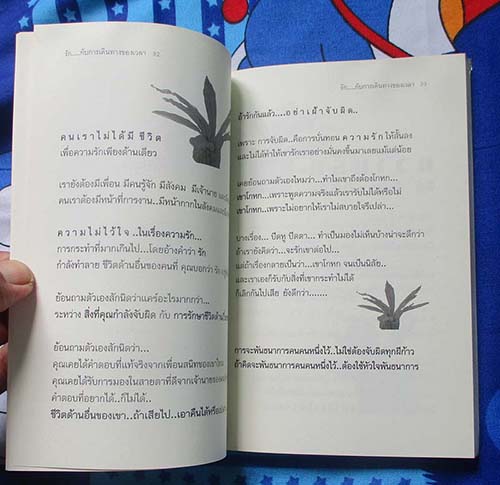 รัก.....กับการเดินทางของเวลา 32
คนเราไม่ได้มี ชีวิต
เพื่อความรักเพียงด้านเดียว
เรายังต้องมีเพื่อน มีคนรู้จัก มีสังคม มีเจ้านาย
คนเราต้องมีหน้าที่การงาน...มีหน้ากากในสังคม
ความไม่ไว้ใจ ..ในเรื่องความรัก...
การกระทำที่มากเกินไป...โดยอ้างคำว่า รัก
กำลังทำลาย ชีวิตด้านอื่นของคนที่ คุณบอกว่า รัก
ย้อนถามตัวเองสักนิดว่าแคร์อะไรมากกว่า..
ระหว่าง สิ่งที่คุณกำลังจับผิด กับ การรักษาชีวิตด้าน
ย้อนถามตัวเองสักนิดว่า...
คุณเคยได้คำตอบที่แท้จริงจากเพื่อนสนิทของเขา
คุณเคยได้รับการมองในสายตาที่ดีจากเจ้านายของ
คำตอบที่อยากได้..ก็ไม่ได้..
ชีวิตด้านอื่นของเขา..ถ้าเสียไป..เอาคืนได้หรือ
รัก.....กับการเดินทางของเวลา 33
ถ้ารักกันแล้ว....อย่าเฝ้าจับผิด..
เพราะ การจับผิด..คือการบั่นทอน ความรัก ให้สั้นลง
และไม่ได้ทำให้เขารักเราอย่างมั่นคงขึ้นมาเลยแม้แต่น้อย
เคยย้อนถามตัวเองไหมว่า...ทำไมเขาถึงต้องโกหก...
เขาโกหก...เพราะพูดความจริงแล้วเรารับไม่ได้หรือไม่
เขาโกหก...เพราะไม่อยากให้เราไม่สบายใจรึเปล่า...
บางเรื่อง... ปิดหู ปิดตา... ทำเป็นมองไม่เห็นบ้างน่าจะดีกว่า
ถ้าเรายังคิดว่า...จะรักเขาต่อไป...
แต่ถ้าเรื่องกลายเป็นว่า...เขาโกหก จนเป็นนิสัย..
และเราเองก็รับกับสิ่งที่เขากระทำไม่ได้
ก็เลิกกันไปเสีย ยังดีกว่า.......
การจะพันธนาการคนคนหนึ่งไว้..ไม่ใช่ต้องจับผิดทุกฝีก้าว
ถ้าคิดจะพันธนาการคนคนหนึ่งไว้..ต้องใช้หัวใจพันธนาการ